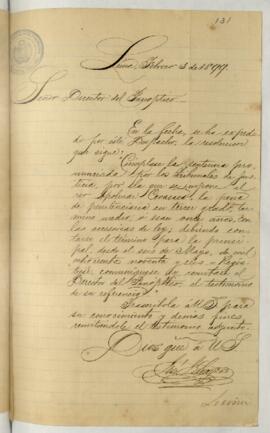 131
Lima, Febrero 3 de 1899.
Señor Director del Panóptico.
En la fecha, se ha expedi-
do por este Despacho, la resolución
que sigue:
"Cúmplase la sentencia pro-
nunciada por los Tribunales de jus-
ticia, por la que se impone al
reo Apolinar la pena
de penitenciaría en tercer grado, tér-
mino ó sean once años, con
las accesorias de ley; debiendo con-
tarse el término para la princi-
pal, desde el seis de Mayo, de mil
ochocientos noventa y Regis-
trese, comuníquese y remítase al
Director del Panóptico, el testimonio
de su referencia."
Trascríbola á US. para
su conocimiento y demás fines
remitiéndole el testimonio adjunto.
Dios gue. á US.